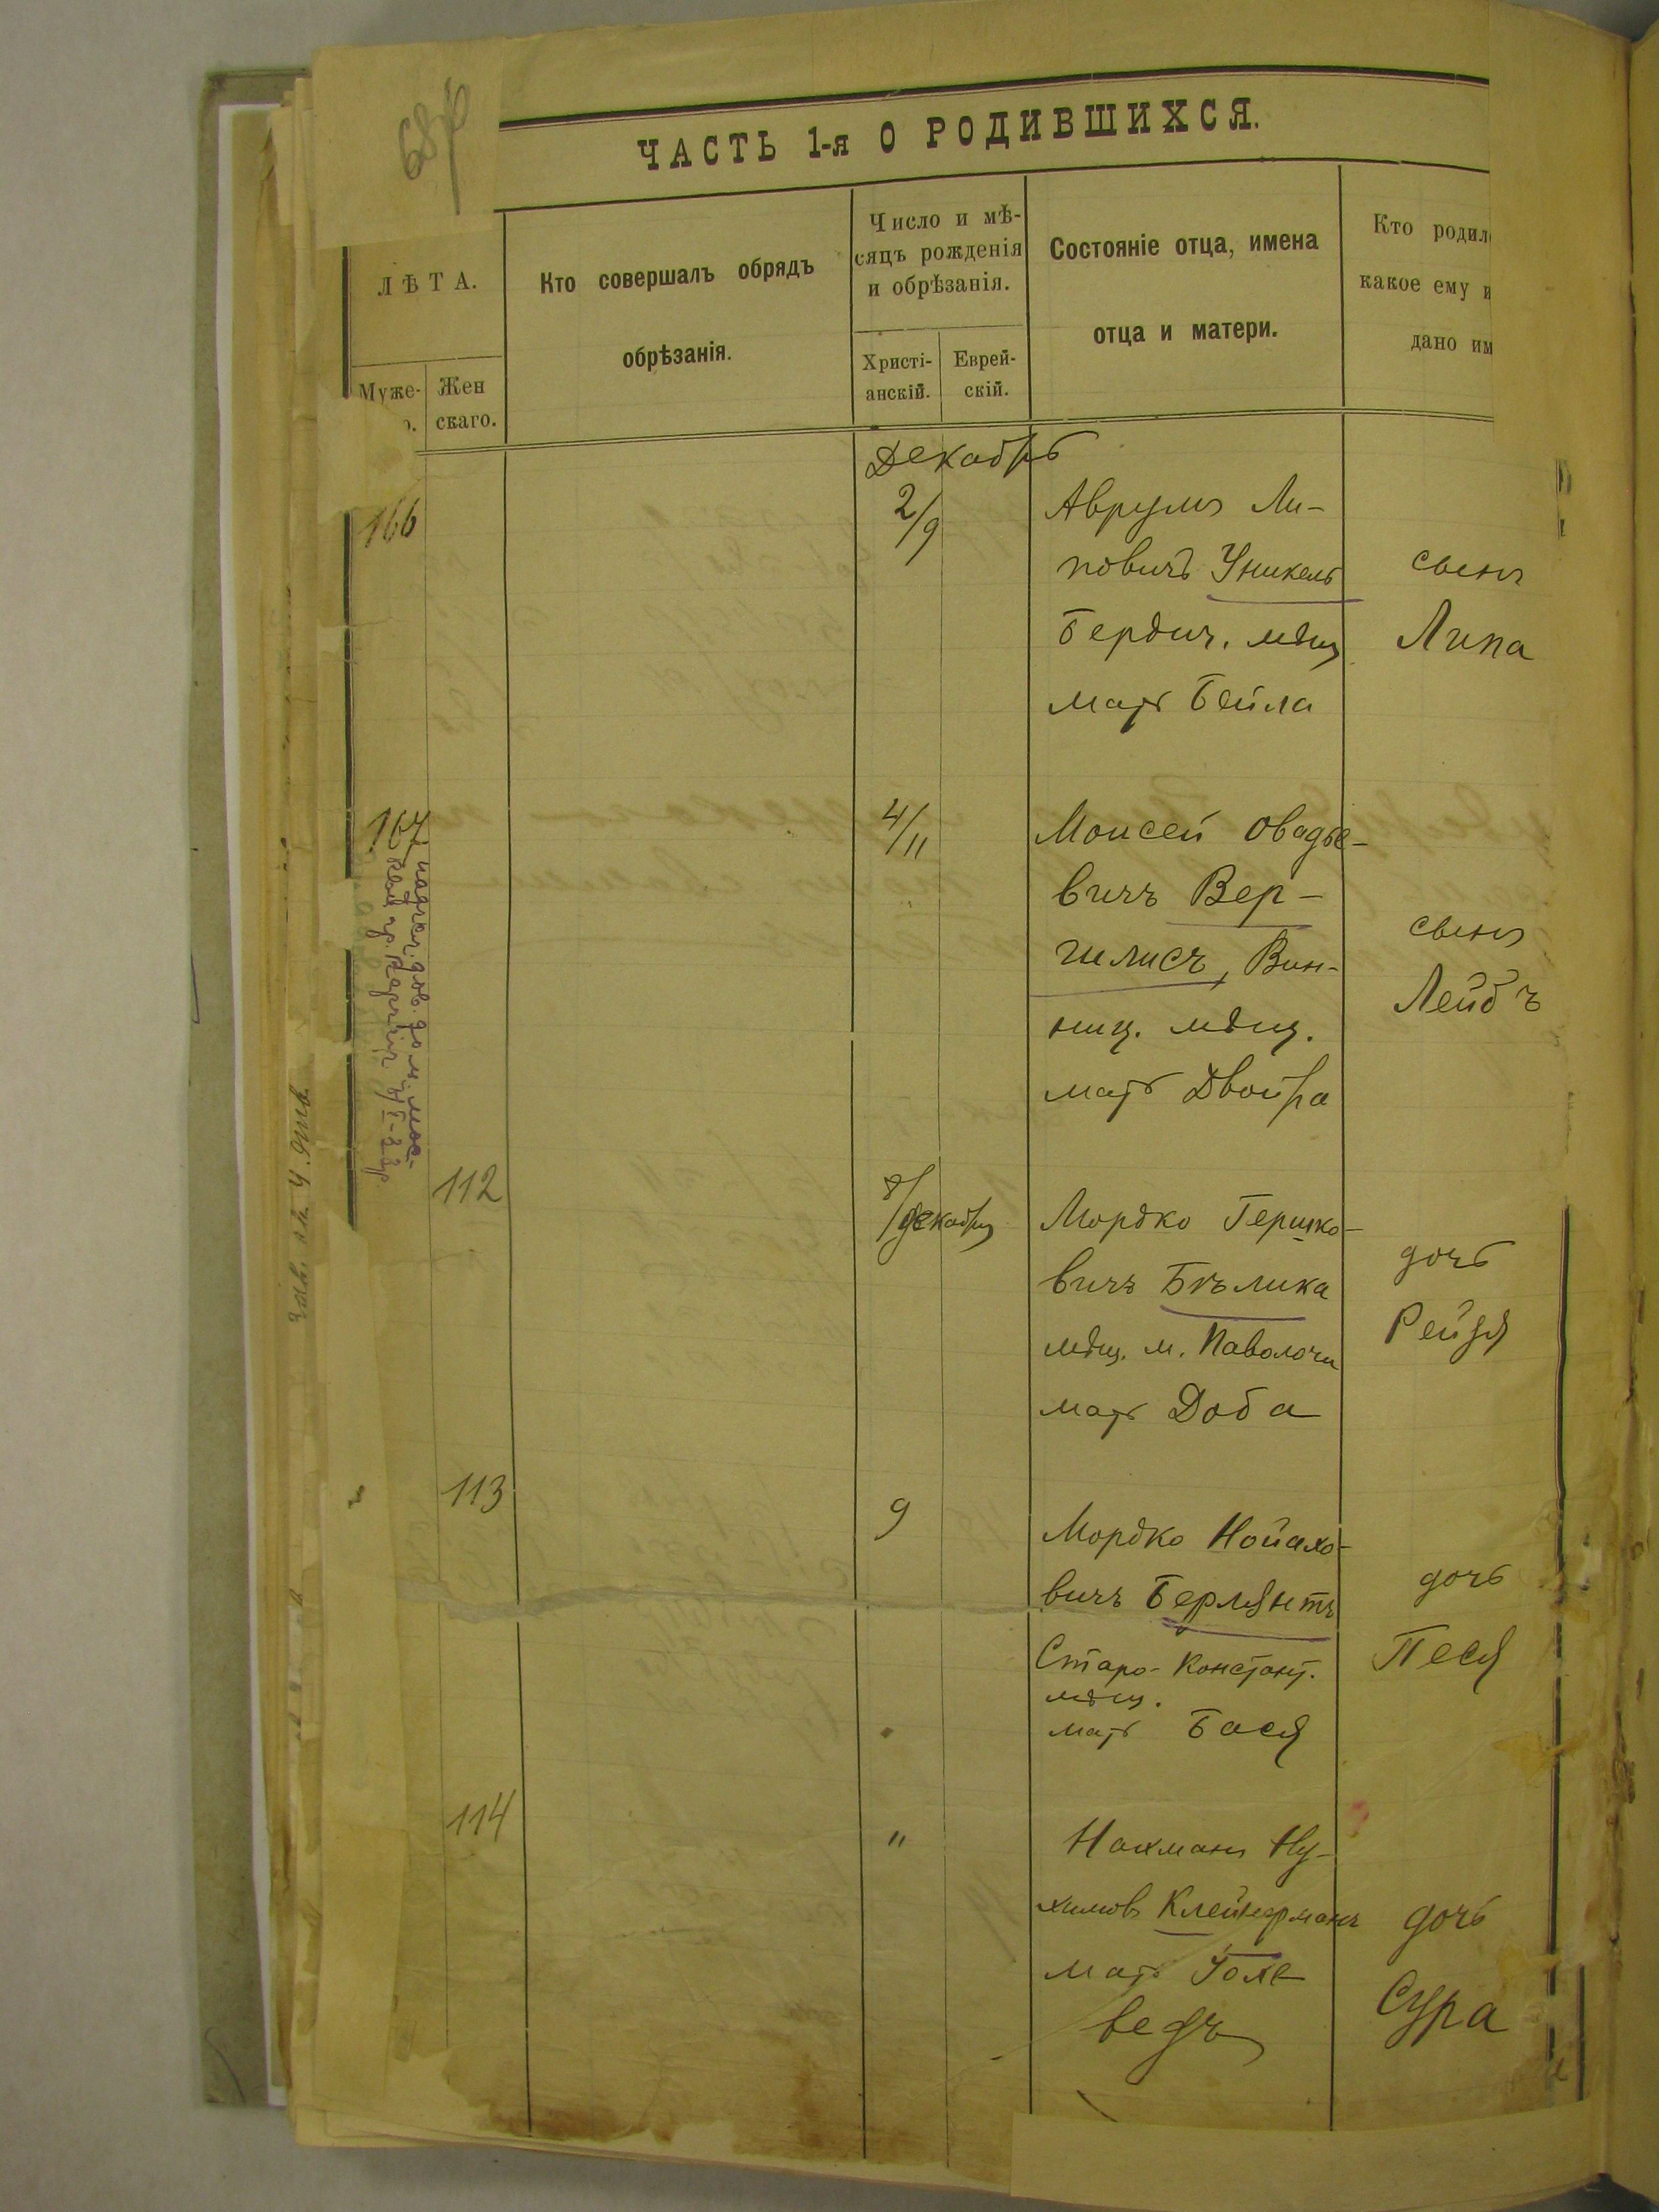 68
ЧАСТЬ 1-я О РОДИВШИХСЯ.
ЛѢТА.
Муже-
Жен
скаго.
Кто совершалъ обрядъ
обрѣзанія.
Число и мѣ-
сяцъ рожденія
и обрѣзанія.
Христі-
анскій.
Еврей-
скій.
Состояніе отца, имена
отца и матери.
Кто родил
какое ему и
дано им
Декабрь
166
2/9
Аврумъ Ли-
повичъ Уникель
Бердич. мѣщ
мать Бейла
сынъ
Липа
167
4/11
Моисей Овадье-
вичъ Вер-
гилисъ, Вин-
ниц. мѣщ.
мать Двойра
сынъ
Лейбъ
112
8/декабря
Мордко Гершко-
вичъ Бѣлика
мѣщ. м. Паволочи
мать Доба
дочь
Рейзя
113
9
Мордко Нойахо-
вичъ Берлянтъ
Старо-Констант.
мѣщ.
мать Бася
дочь
Песя
114
"
Нахманъ Ну-
химов Клейнерманъ
мать
ведъ
дочь
Сура